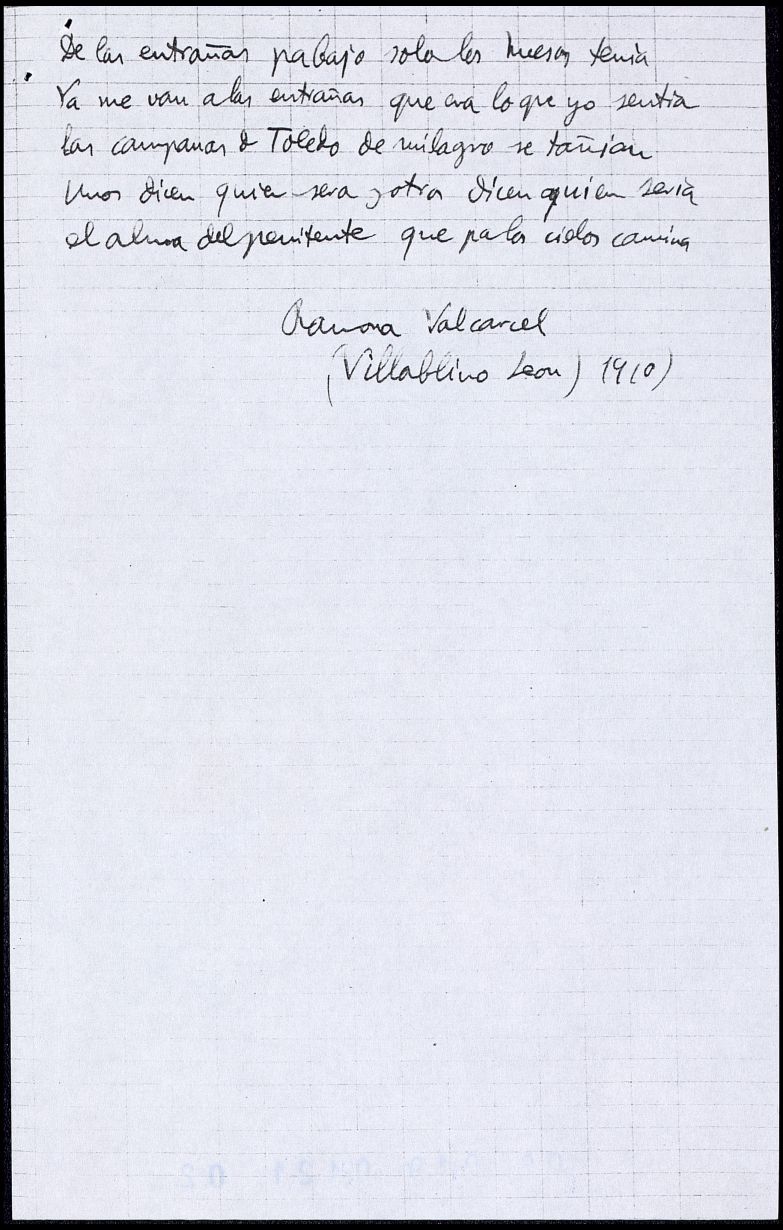 De las entrañas pabajo solo los huesos tenia
Ya me van a las entrañas que era lo que yo sentia
las campanas d Toledo de milagro se tañian
Unos dicen quien sera y otros dicen quien seria
el alma del penitente que pa los cielos camina
Ramona Valcarcel
(Villablino Leon) 1910)